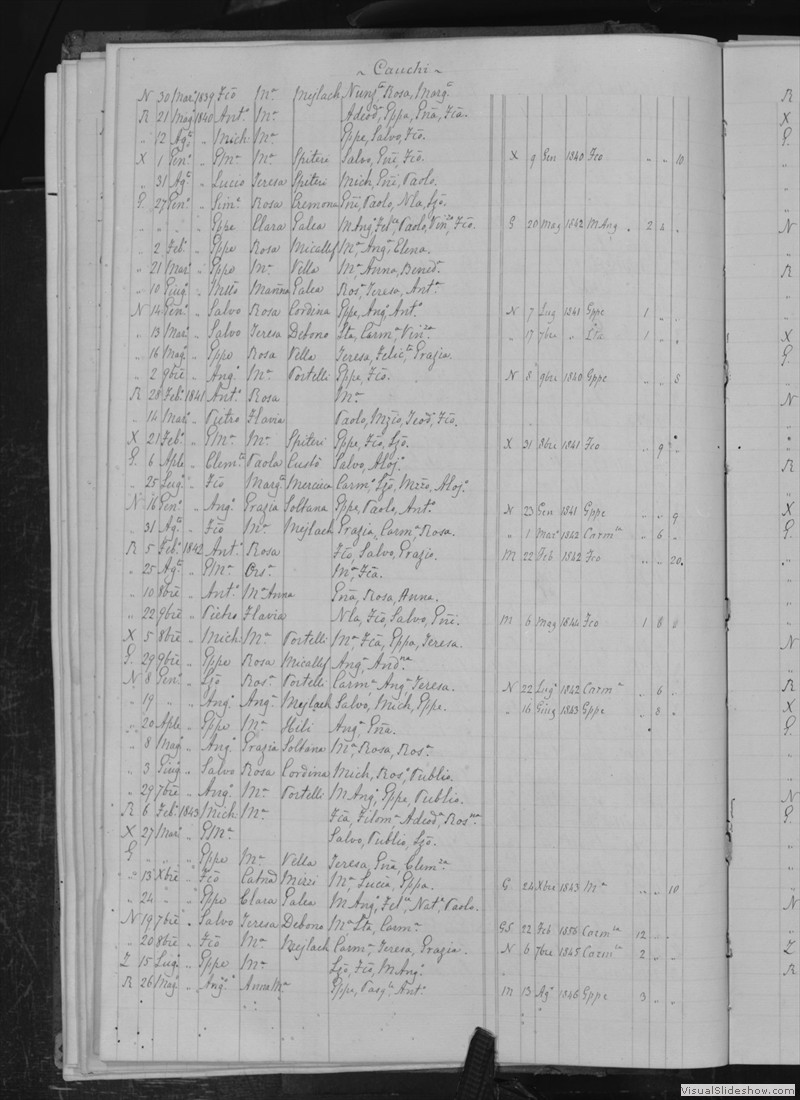 ~ Cauchi ~
N 30 Mar 1839 Fcõ Mª Mejlach Nunzª Rosa, Margª
R 21 Mag 1840 Antº Mª Adeodª, Gppa, Eña, Fcã.
" 12 Agº " Mich Mª Gppe, Salvo, Fcõ.
X 1 Genº " Mª Spiteri Salvo, Eñi, Fcõ. X 9 Gen 1840 Fco " " 10
" 31 Agº " Lucio Teresa Spiteri Mich, Eñi, Paolo.
G 27 Genº " Simº Rosa Cremona Eñi, Paolo, Nla, Lzõ.
" " " " Gppe Clara Galea M Angº, Felce, Paolo, Vinzo, Fcõ. G 20 Mag 1842 M Ang " 2 4 "
" 2 Febº " Gppe Rosa Micallef Mª, Angª, Elena.
" 21 Marº " Gppe Mª Vella Mª Anna, Benedª.
" 10 Giugº " Mttõ Mariña Galea Rosª, Teresa, Antª
N 14 Genº " Salvo Rosa Cordina Gppe, Angº, Antº N 7 Lug 1841 Gppe 1 " "
" 13 Marº " Salvo Teresa Debono Lta, Carmª, Vinza " 17 7bre " Lta 1 " "
" 16 Magº " Gppe Rosa Vella Teresa, Felicta, Grazia.
" 2 9bre " Angº Mª Portelli Gppe, Fcõ. N 8 9bre 1840 Gppe " " 8
R 28 Febº 1841 Antº Rosa Mª
" 14 Marº " Pietro Flavia Paolo, Mzio, Teodª, Fcõ.
X 21 Febº " Mª Spiteri Gppe, Fcõ, Lzõ. X 31 8bre 1841 Fco " 9 "
G 6 Aple " Clemte Paola Custò Salvo, Alojº
" 25 Lugº " Fcõ Margª Mercieca Carmº, Lzõ, Mzzõ, Alojº
N 16 Genº " Angº Grazia Soltana Gppe, Paolo, Antº N 23 Gen 1841 Gppe " " 9
" 31 Agº " Fcõ Mª Mejlach Grazia, Carmª, Rosa. " 1 Marº 1842 Carmla " 6 "
R 5 Febº 1842 Antº Rosa Fcõ, Salvo, Grazio. M 22 Feb 1842 Fco " " 20
" 25 Agº " Orsª Mª, Fcã.
" 10 8bre " Antº Mª Anna Eña, Rosa, Anna.
" 22 9bre " Pietro Flavia Nla, Fcõ, Salvo, Eñi. M 6 Mag 1844 Fco 1 8 "
X 5 8bre " Mich Mª Portelli Mª, Fcã, Gppa, Teresa.
G 29 9bre " Gppe Rosa Micallef Angª, Andna
N 8 Genº " Lzõ Rosª Portelli Carmª, Angª, Teresa. N 22 Lugº 1842 Carmª " 6 "
" 19 " " Angº Angª Mejlach Salvo, Mich, Gppe. " 16 Giug 1843 Gppe " 8 "
" 20 Aple " Gppe Mª Hili Angª, Eña.
" 8 Mag " Angº Grazia Soltana Mª, Rosa, Rosª.
" 3 Giug " Salvo Rosa Cordina Mich, Rosº, Publio.
" 29 7bre " Angº Mª Portelli M Angº, Gppe, Publio.
R 6 Febº 1843 Mich Mª Fcã, Filomª, Adeodª, Rosna
X 27 Marº " Salvo, Publio, Lzõ.
G " " " Gppe Mª Vella Teresa, Eña, Clemza
" 13 Xbre " Fcõ Catña Mizzi Mª, Lucia, Gppa. G 24 Xbre 1843 Mª " " 10
" 24 " " Gppe Clara Galea M Angº, Felce, Natº, Paolo.
N 19 7bre " Salvo Teresa Debono Mª, Lta, Carmª GS 22 Feb 1856 Carmla 12 " "
" 20 8bre " Fcõ Mª Mejlach Carmª, Teresa, Grazia. N 6 7bre 1845 Carmla 2 " "
Z 15 Lugº " Gppe Mª Lzõ, Fcõ, M Angº
R 26 Mag " Angº Anna Mª Gppe, Pasqle, Antº M 13 Agº 1846 Gppe 3 " "
VisualSlideshow.com